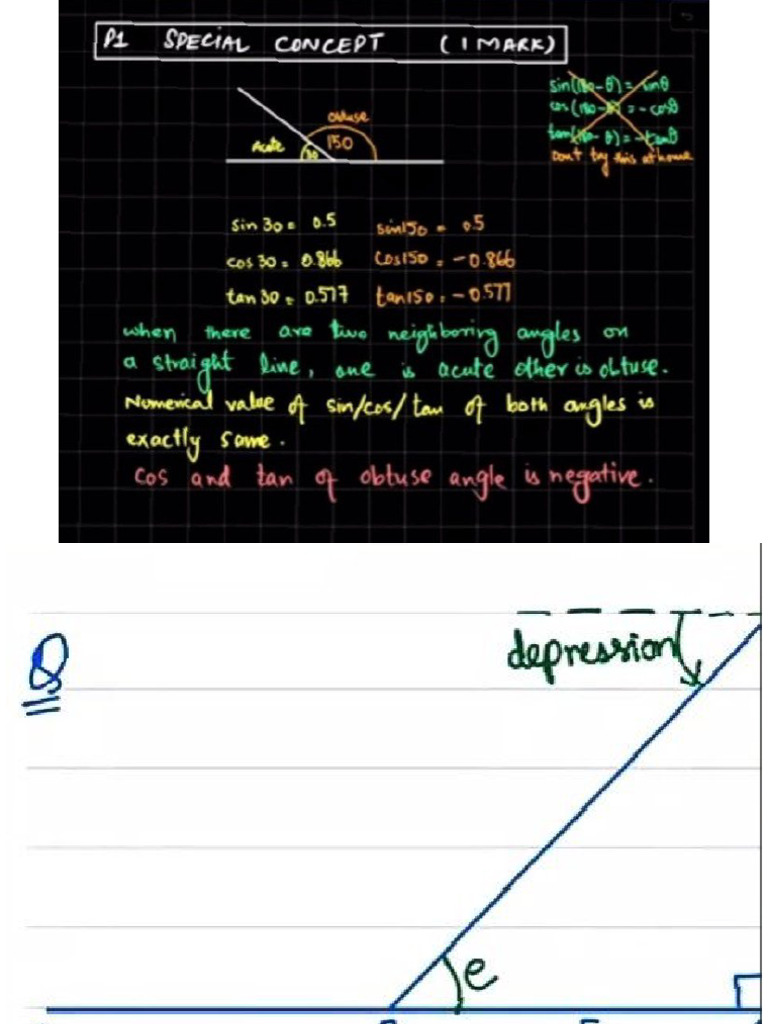 P1 SPECIAL CONCEPT (1 MARK)
sin(180-θ) = sinθ
cos(180-θ) = -cosθ
tan(180-θ) = -tanθ
Dont try this at home
obtuse
Acute 30 150
sin 30 = 0.5 sin150 = 0.5
cos 30 = 0.866 cos150 = -0.866
tan 30 = 0.577 tan150 = -0.577
when there are two neighboring angles on
a straight line, one is acute other is obtuse.
Numerical value of sin/cos/tan of both angles is
exactly same.
cos and tan of obtuse angle is negative.
Q
depression
e